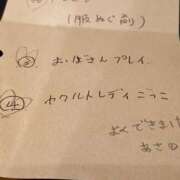 (服ぬぐ前)
③ おばさんプレイ.
④ ヤクルトレディごっこ
よくできま
あさの